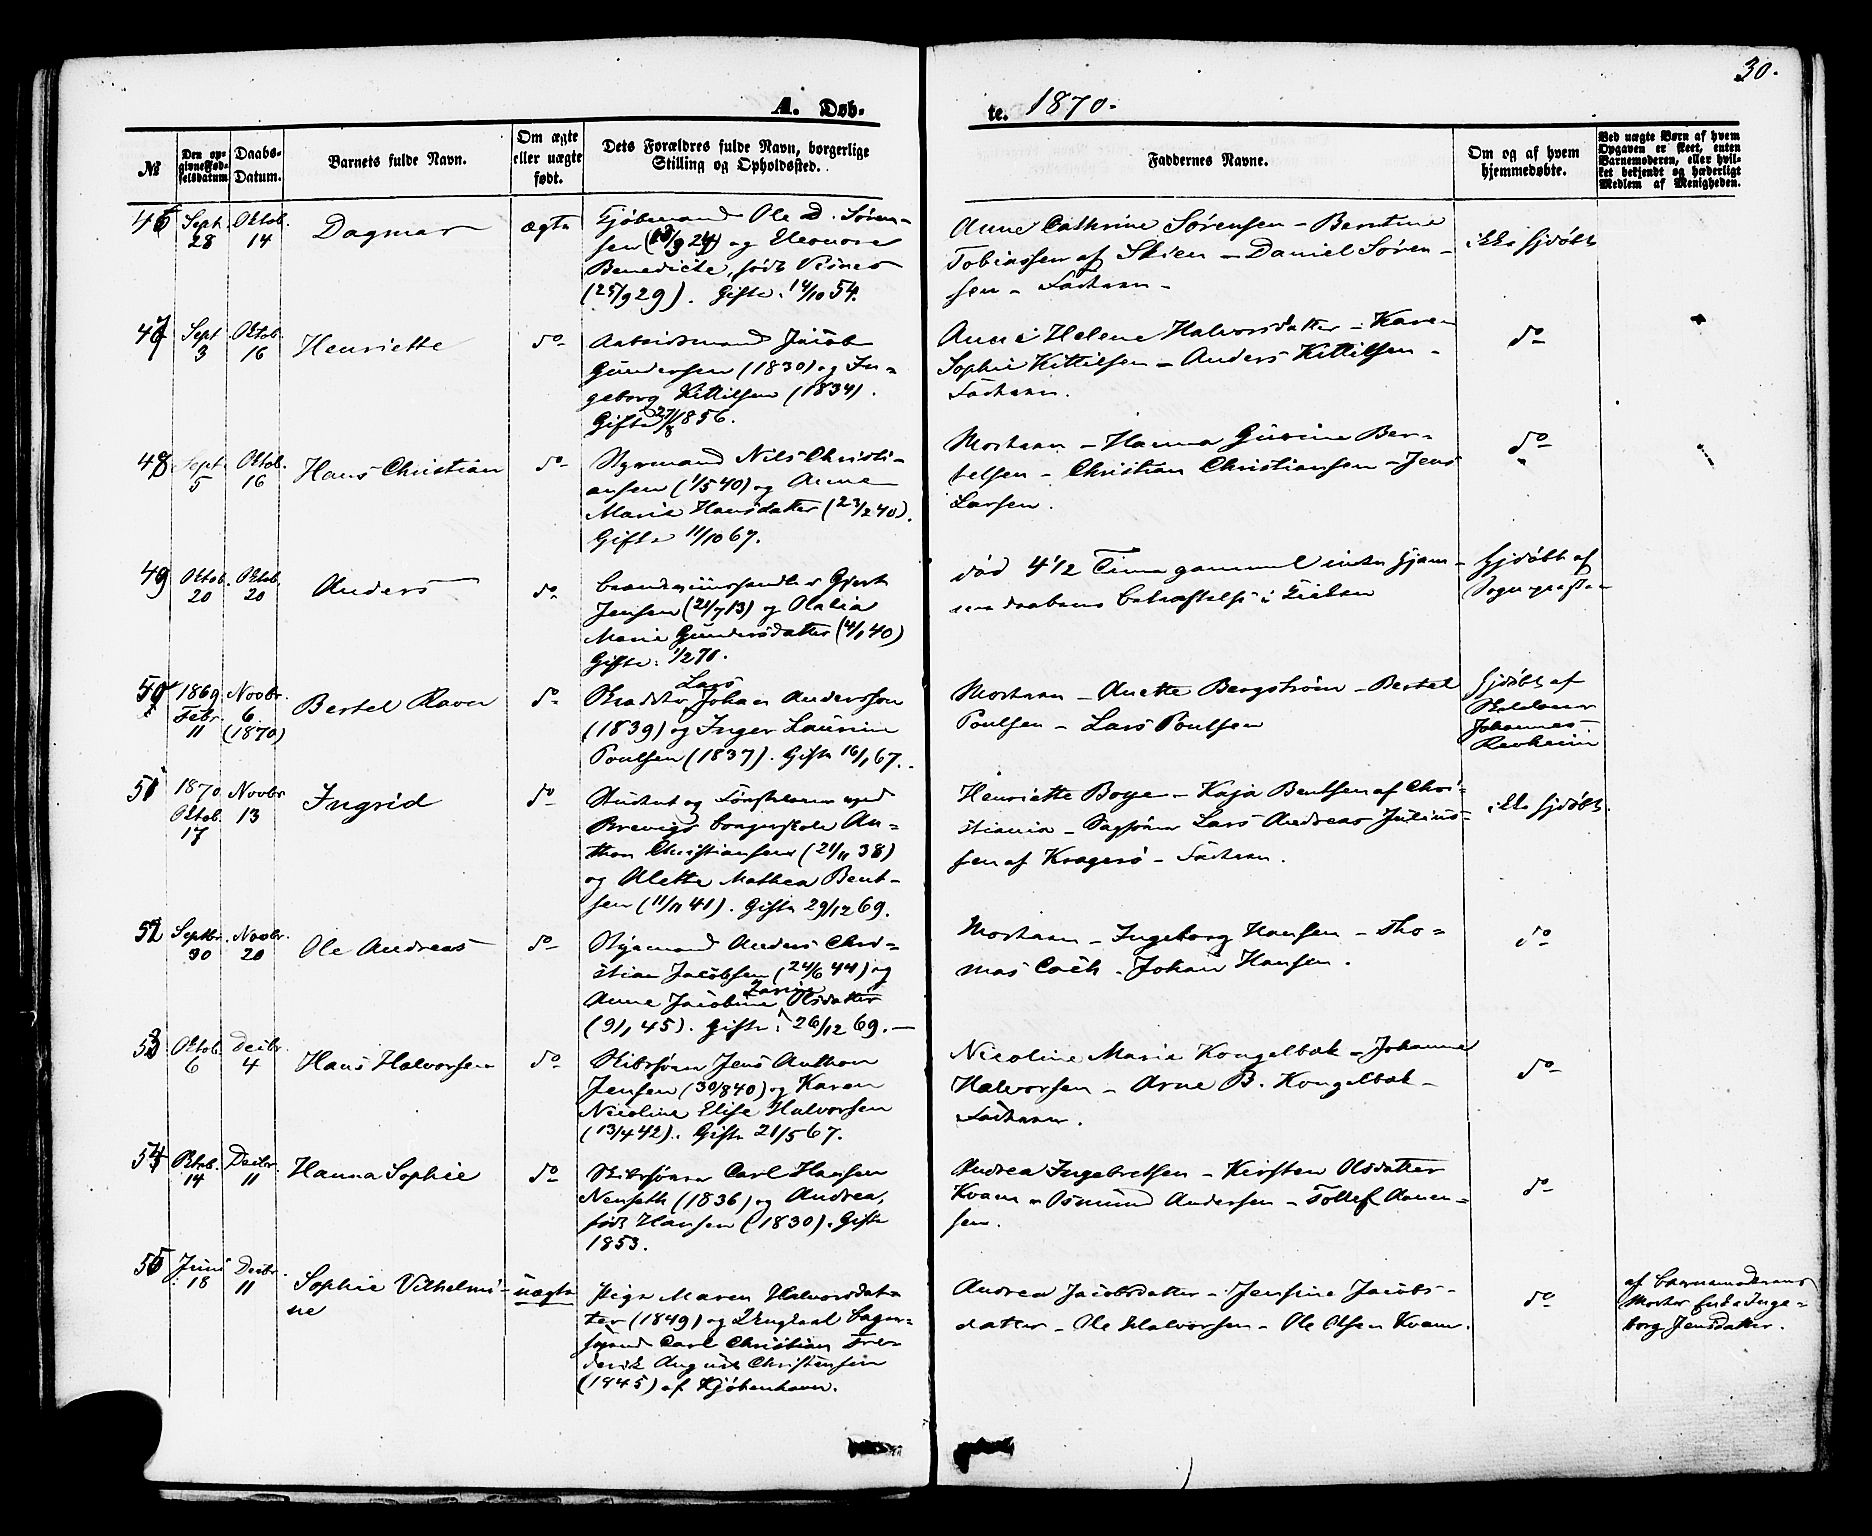 30.
A. Døb-
te. 1870.
№
Den opgivne Fødselsdatum
Daabs-Datum.
Barnets fulde Navn.
Om ægte eller uægte født.
Dets Forældres fulde Navn, borgerlige Stilling og Opholdssted.
Faddernes Navne.
Om og af hvem hjemmedøbte.
Ved uægte Børn af hvem Opgaven er skeet, enten Barnemoderen, eller hvilket bekjendt og hæderligt Medlem af Menigheden.
46 Sept. 28 Oktob. 14 Dagmar ægte
Kjøbmand Ole D. Søren-
sen (13/9 24) og Eleonore
Benedicte, født
(25/9 29). Gifte: 14/10 54.
Anne Cathrine Sørensen – Berntine
Tobiassen af Skien – Daniel Søren-
sen – Faderen –
ikke hjdøbt
47 Sept 3 Oktob. 16 Henriette do
Arbeidsmand Jacob
Gundersen (1830) og In-
geborg Kittilsen (1834).
Gifte 27/8 1856.
Anne Helene Halvorsdatter – Karen
Sophie Kittilsen – Anders Kittilsen –
Faderen.
do
48 Sept. 5 Oktob. 16 Hans Christian do
Styrmand Nils Christi-
ansen (1/5 40) og Anne
Marie Hansdatter (23/2 40).
Gifte 11/10 67.
Moderen – Hanna Gurine Ber-
telsen – Christian Christiansen – Jens
Larsen.
do
49 Oktob. 20 Oktob. 20 Anders do
Brændeviinshandler Gjert
Jensen (21/7 13) og Olalia
Marie Gundersdatter (4/1 40)
Gifte: 1/2 70.
død 4 1/2 Time gammel inden hjem-
me daabens bekræftelse i Kirken
Hjdøbt af
Sognepræsten
50 1869 Febr. 11 Novbr. 6 (1870) Bertel Ravn do
Lars
Johan Andersson
(1839) og Inger Laurine
Poulsen (1837). Gifte 16/1 67.
Moderen – Anette Bergstrøm – Bertel
Poulsen – Lars Poulsen
Hjdøbt af
Johannes
51 1870 Oktob. 17 Novbr 13 Ingrid do
Student og Førstelærer ved
Brevigs borgerskole An-
thon Christiansen (21/11 38)
og Alette Mathea Bent-
sen (11/11 41). Gifte 29/12 69.
Henriette Boye – Kaja Bentsen af Chri-
stiania – Sagfører Lars Andreas Julius-
sen af Kragerø – Faderen.
ikke hjdøbt
52 Septbr. 30 Novbr. 20 Ole Andreas do
Styrmand Anders Chri-
stian Jacobsen (24/6 44) og
Anne Jacobine Olsdatter
(9/1 45). Gifte: 26/12 69. –
Moderen – Ingeborg Hansen – Tho-
mas Coch. Johan Hansen.
do
53 Oktob. 6 Decbr. 4 Hans Halvorsen do
Skibsfører Jens Anthon
Jensen (30/8 40) og Karen
Nicoline Elise Halvorsen
(13/4 42). Gifte 21/5 67.
Nicoline Marie Kongelbæk – Johanne
Halvorsen – Arne B. Kongelbæk –
Faderen.
do
54 Oktob. 14 Decbr. 11 Hanna Sophie do
Skibsfører Carl Hansen
Nenseth (1836) og Andrea,
født Hansen (1830). Gifte
1853.
Andrea Ingebretsen – Kirsten Olsdatter
Kvam – Osmund Andersen – Tollef
sen.
do
55 Juni 18 Decbr. 11 Sophie Vilhelmi-
ne uægte
Pige Maren Halvorsdat-
ter (1849) og Ungkarl Bager-
svend Carl Christian Fre-
derik August Christensen
(1845) af Kjøbenhavn.
Andrea Jacobsdatter – Jensine Jacobs-
datter – Ole Halvorsen – Ole Olsen Kvam.
do
af Barnemoderens
Moder Enke Inge-
borg Jensdatter.